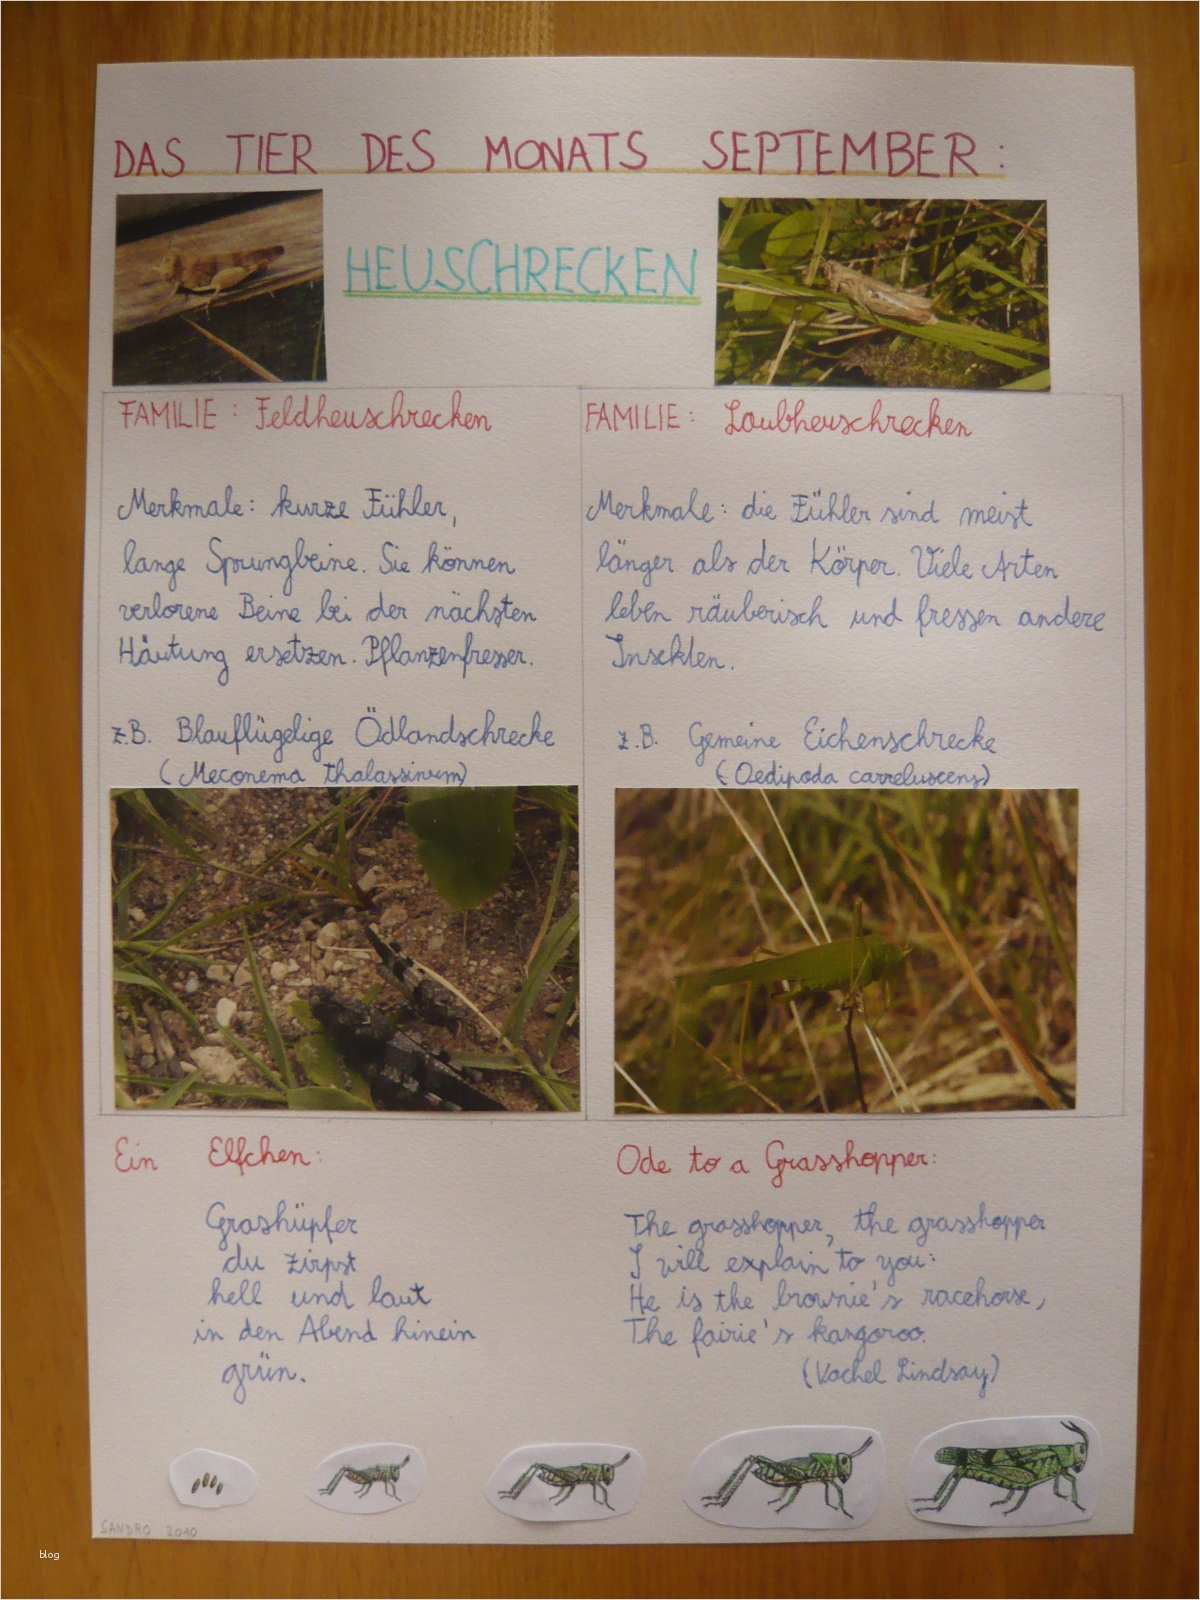 DAS TIER DES MONATS SEPTEMBER:
HEUSCHRECKEN
FAMILIE: Feldheuschrecken
Merkmale: kurze Fühler,
lange Sprungbeine. Sie können
verlorene Beine bei der nächsten
Häutung ersetzen. Pflanzenfresser.
z.B. Blauflügelige Ödlandschrecke
(Meconema thalassinum)
FAMILIE: Laubheuschrecken
Merkmale: die Fühler sind meist
länger als der Körper. Viele Arten
leben räuberisch und fressen andere
Insekten.
z.B. Gemeine Eichenschrecke
(Oedipoda carreluscens)
Ein Elfchen:
Grashüpfer
du zirpst
hell und laut
in den Abend hinein
grün.
Ode to a Grasshopper:
The grasshopper, the grasshopper
I will explain to you:
He is the brownie's racehorse,
The fairie's kangoroo.
(Vachel Lindsay)
SANDRO 2010
blog